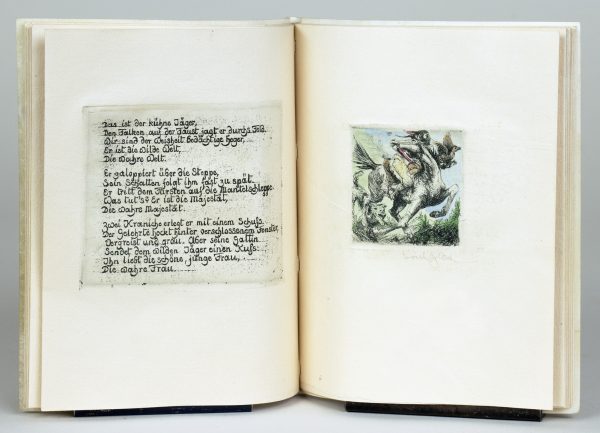 Das ist der kühne Jäger,
Den Falken auf der Faust jagt er durchs Feld.
Wir sind der Weisheit bedächtige Heger,
Er ist die wilde Welt,
Die wahre Welt.
Er galoppiert über die Steppe,
Sein Schatten folgt ihm fast zu spät.
Er tritt dem Fürsten auf die Mantelschleppe.
Was tut's? Er ist die Majestät,
Die wahre Majestät.
Zwei Kraniche erlegt er mit einem Schuß.
Der Gelehrte hockt hinter verschlossenem Fenster,
Vergreist und grau. Aber seine Gattin
Sendet dem wilden Jäger einen Kuß:
Ihn liebt die schöne, junge Frau,
Die wahre Frau.